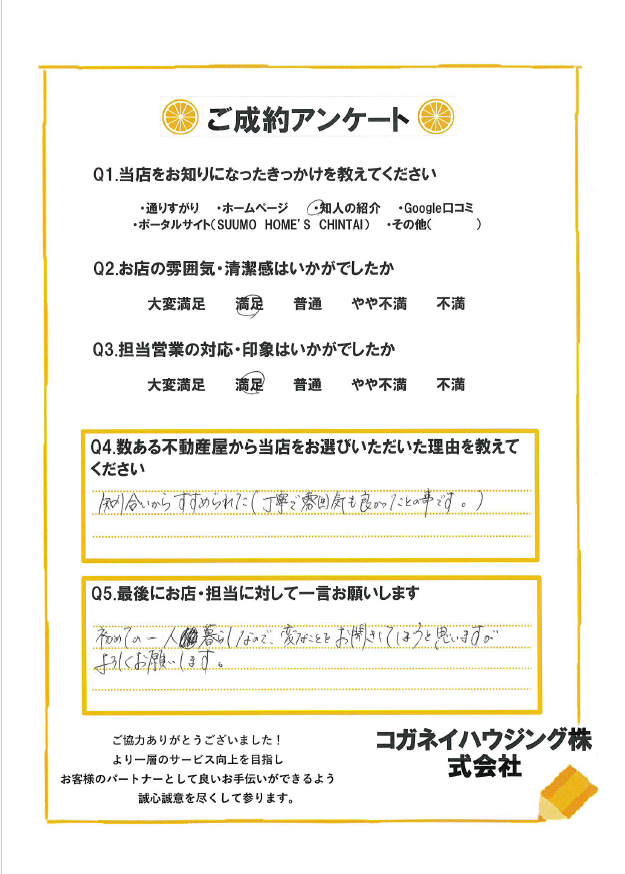 ご成約アンケート
Q1.当店をお知りになったきっかけを教えてください
・通りすがり ・ホームページ ・知人の紹介 ・Google口コミ
・ポータルサイト(SUUMO HOME'S CHINTAI) ・その他( )
Q2.お店の雰囲気・清潔感はいかがでしたか
大変満足 満足 普通 やや不満 不満
Q3.担当営業の対応・印象はいかがでしたか
大変満足 満足 普通 やや不満 不満
Q4.数ある不動産屋から当店をお選びいただいた理由を教えて
ください
知り合いからすすめられた(丁寧で雰囲気も良かったとの事です。)
Q5.最後にお店・担当に対して一言お願いします
初めての一人暮らしなので、変なことをお聞きしてしまうと思いますが
よろしくお願いします。
ご協力ありがとうございました!
より一層のサービス向上を目指し
お客様のパートナーとして良いお手伝いができるよう
誠心誠意を尽くして参ります。
コガネイハウジング株
式会社